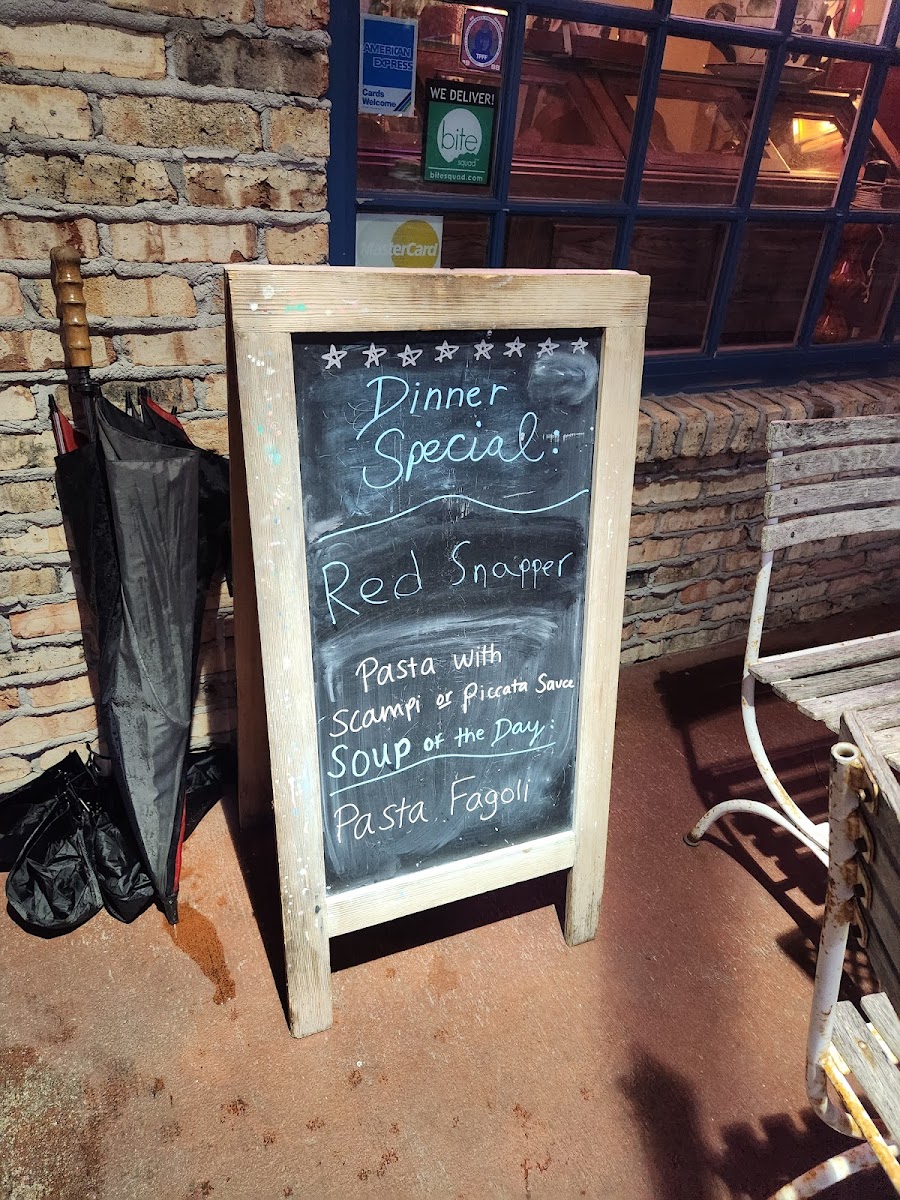 AMERICAN
EXPRESS
Cards
Welcome
TPFF
WE DELIVER!
bite
squad
bitesquad.com
MasterCard
Dinner
Special:
Red Snapper
Pasta with
Scampi or Piccata Sauce
Soup of the Day:
Pasta Fagoli